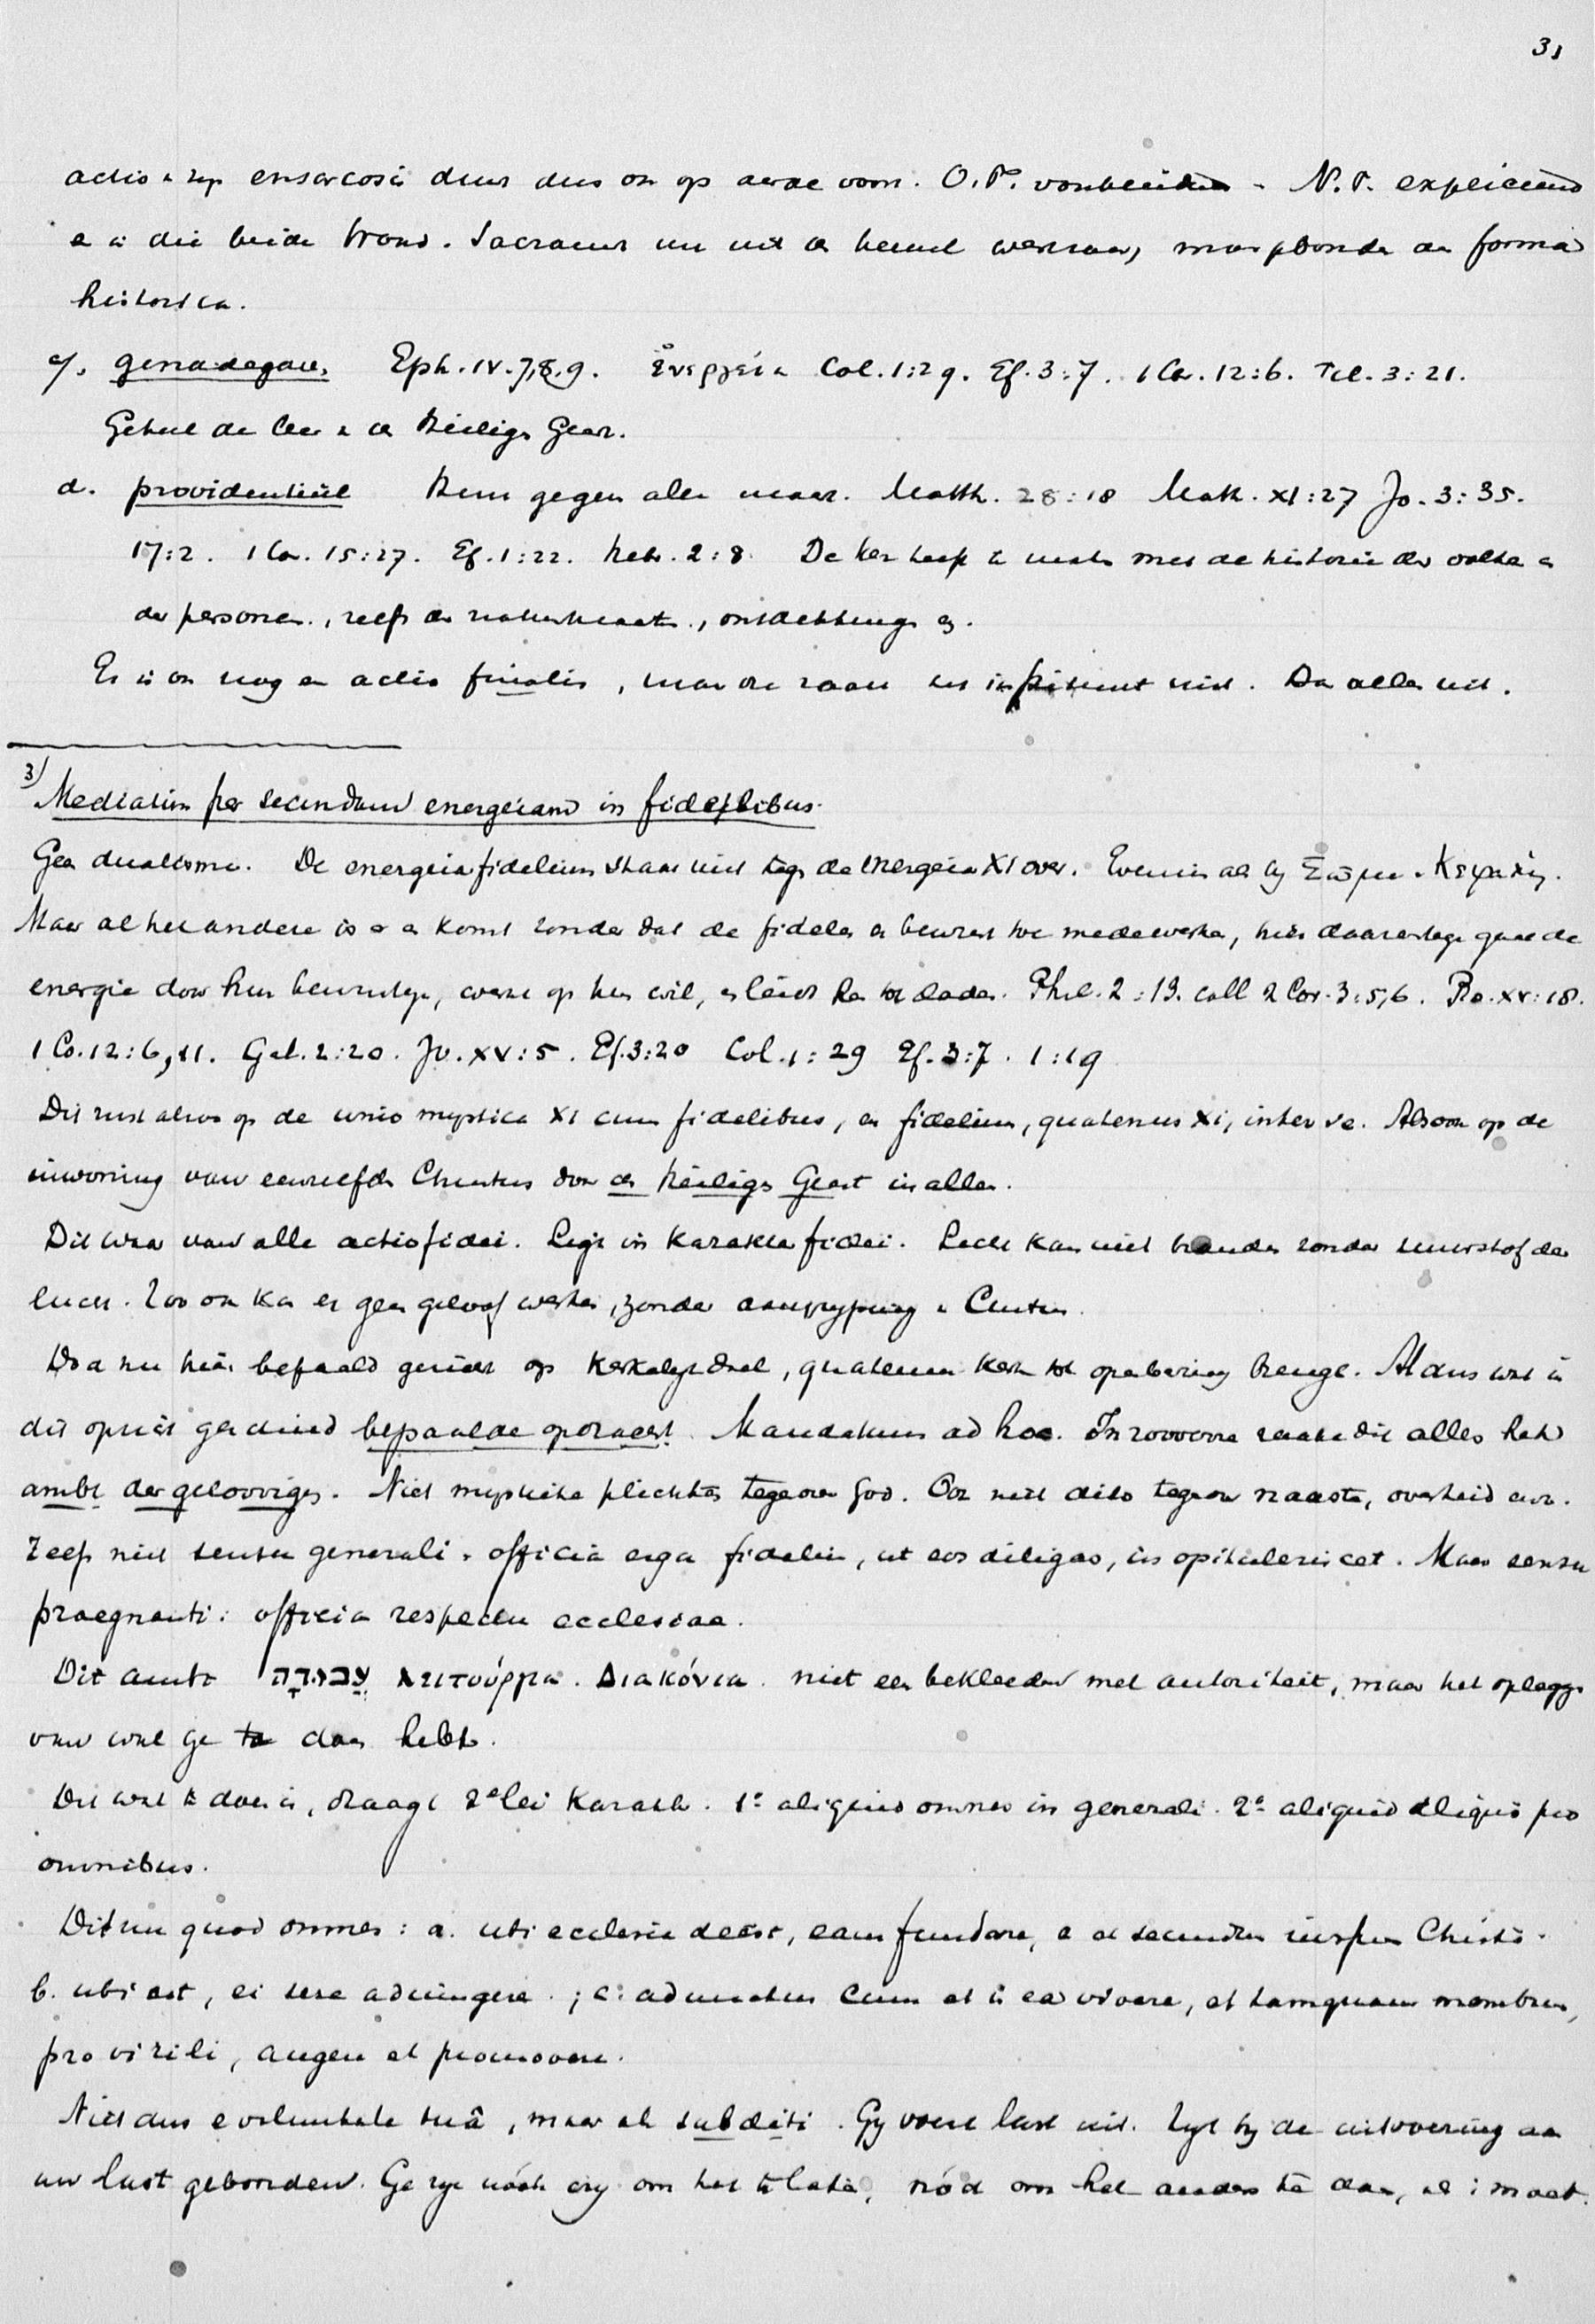 31
actio in zijn ensarcosis deur dus ook op aarde voor. O.T. voorbereidend - N.T. expliciend
en in die beide trans. Sacrament nu uit de hemel werkzaam, maar gebonden aan forma
historica.
c/. genadegave. Eph. IV.7,8,9. ἐνεργεία Col. 1:29. Ef. 3:7. 1 Cor. 12:6. Fil. 3:21.
Geheel de leer v. de Heilige Geest.
d. providentieel Hem gegeven alle macht. Matth. 28:18 Matth. XI:27 Jo. 3:35.
17:2. 1 Cor. 15:27. Ef. 1:22. Hebr. 2:8. De kerk heeft te maken met de historie der volken en
der personen, zelfs der natuurkrachten, ontdekkingen enz.
Er is ook nog een actio finalis, maar die raakt het instituut niet. Dan alles uit.
3) Mediatim per secundam energeiam in fidelibus.
Geen dualisme. De energeia fidelium staat niet tegen de energeia Xi over. Evenmin als bij Σῶμα en Κεφαλή.
Maar al het andere is en komt zonder dat de fideles er bewust toe medewerken, hier daarentegen gaat de
energie door hun bewustzijn, werkt op hun wil, en leidt hen tot daden. Phil. 2:13. coll 2 Cor. 3:5,6. Ro. XV:18.
1 Co. 12:6,11. Gal. 2:20. Jo. XV:5. Ef. 3:20 Col. 1:29 Ef. 3:7. 1:19
Dit rust alzoo op de unio mystica Xi cum fidelibus, en fidelium, quatenus Xi, inter se. Alzoo op de
inwoning van eenzelfden Christus door den Heiligen Geest in allen.
Dit waar van alle actio fidei. Ligt in karakter fidei. Licht kan niet branden zonder zuurstof der
lucht. Zoo ook kan er geen geloof werken, zonder aangrijping v. Christus.
Doch nu hier bepaald gericht op kerkelijk doel, quatenus kerk tot openbaring brengt. Aldus wat in
dit opzicht gediend bepaalde opdracht. Mandatum ad hoc. In zooverre raakt dit alles het
ambt der geloovigen. Niet mystieke plichten tegenover God. Ook niet dito tegenover naaste, overheid enz.
Zelfs niet sensu generali. officia erga fideles, ut eos diligas, iis opituleris cet. Maar sensu
praegnanti: officia respectu ecclesiae.
Dit ambt עֲבוֹדָה λειτούργια. Διακόνια. niet een bekleeden met autoriteit, maar het opleggen
van wat ge te doen hebt.
Dit wat te doen is, draagt 2erlei karakter. 1º aliquid omnes in generali. 2º aliquid aliquis pro
omnibus.
Dit nu quod omnes: a. ubi ecclesia deest, eam fundare, e et secundum iussum Christi.
b. ubi est, ei sese adiungere.; c. adunatus cum et in ea vivere, et tamquam membrum,
pro virili, augere et promovere.
Niet dus e voluntate tuâ, maar als subditi. Gij voert last uit. Zijt bij de uitvoering aan
uw last gebonden. Ge zijt nóch vrij om het te laten, nóch om het anders te doen, als i moet.